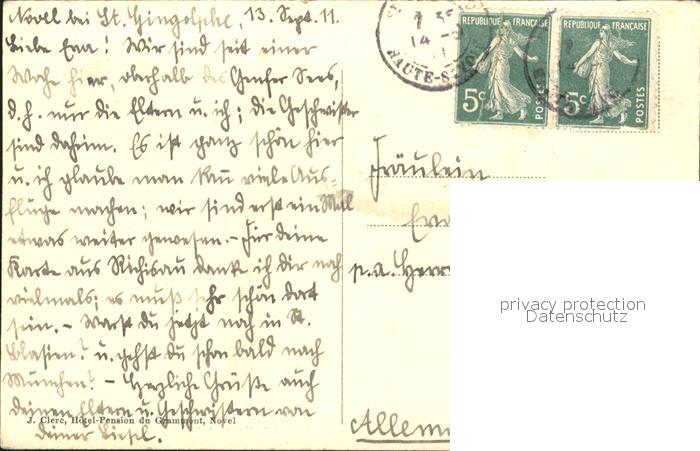 Novel bei St. Gingolphe, 13. Sept. 11.
Liebe Eva! Wir sind seit einer
Woche hier, oberhalb des Genfer Sees,
d. h. nur die Eltern u. ich; die Geschwister
sind daheim. Es ist ganz schön hier
u. ich glaube man kann viele Aus-
flüge machen; wir sind erst ein Mal
etwas weiter gewesen. - Für deine
Karte aus Richisau dank ich dir noch
vielmals; es muß sehr schön dort
sein. - Warst du jetzt noch in St.
Blasien? u. gehst du schon bald nach
München? - Herzliche Grüße auch
deinen Eltern u. Geschwistern von
deiner Liesel.
J. Clerc, Hôtel-Pension du Grammont, Novel
REPUBLIQUE FRANÇAISE
5c
POSTES
REPUBLIQUE FRANÇAISE
5c
POSTES
HAUTE-SAVOIE
Fräulein
p. a. Herr
Allem
privacy protection
Datenschutz